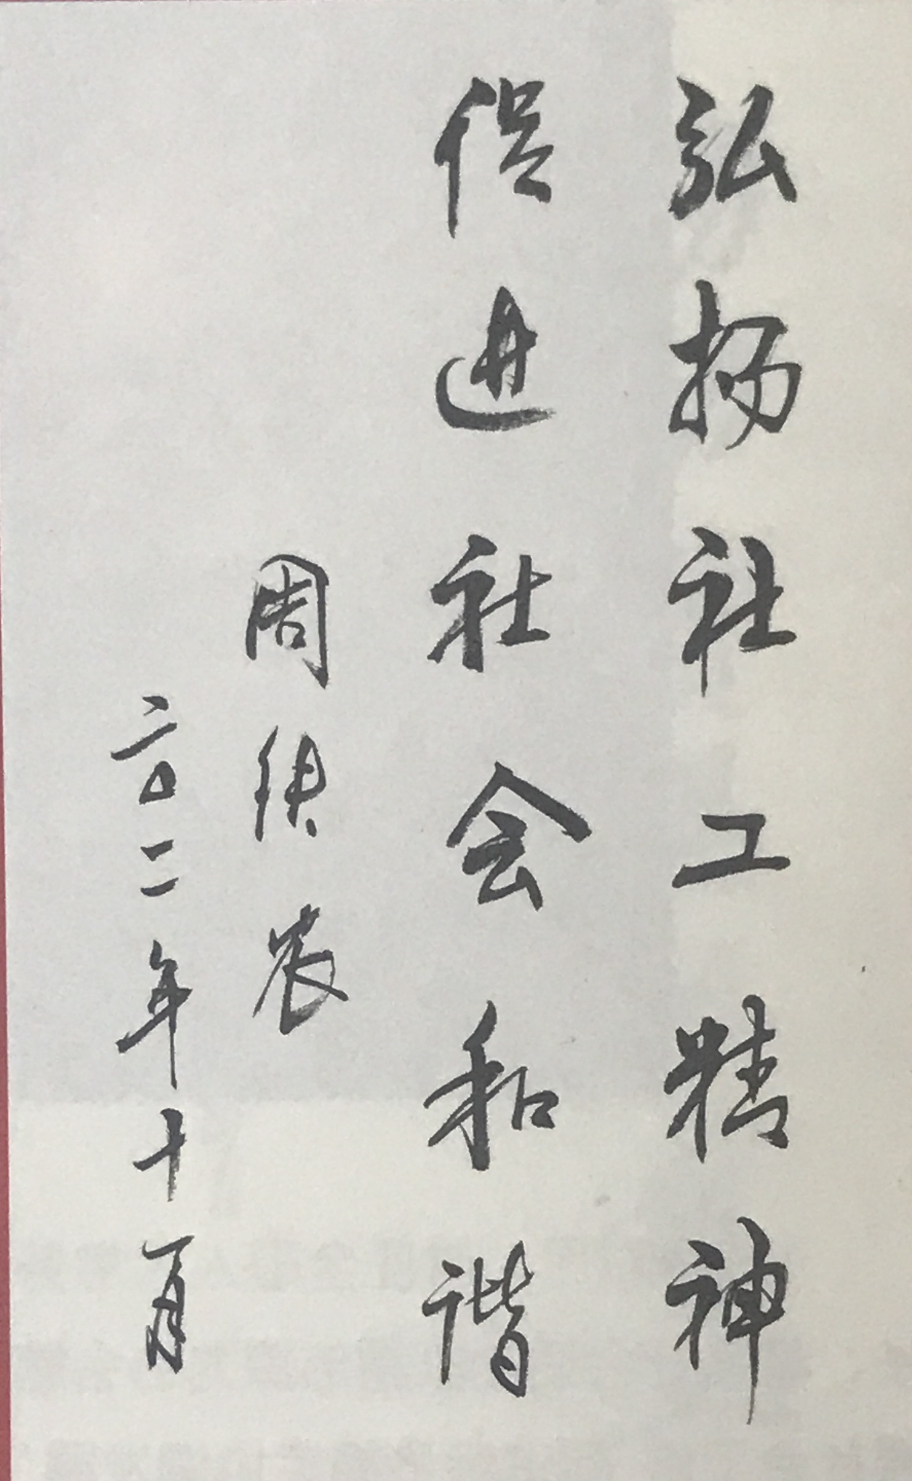 弘扬社工精神
促进社会和谐
周铁农
二〇一一年十一月